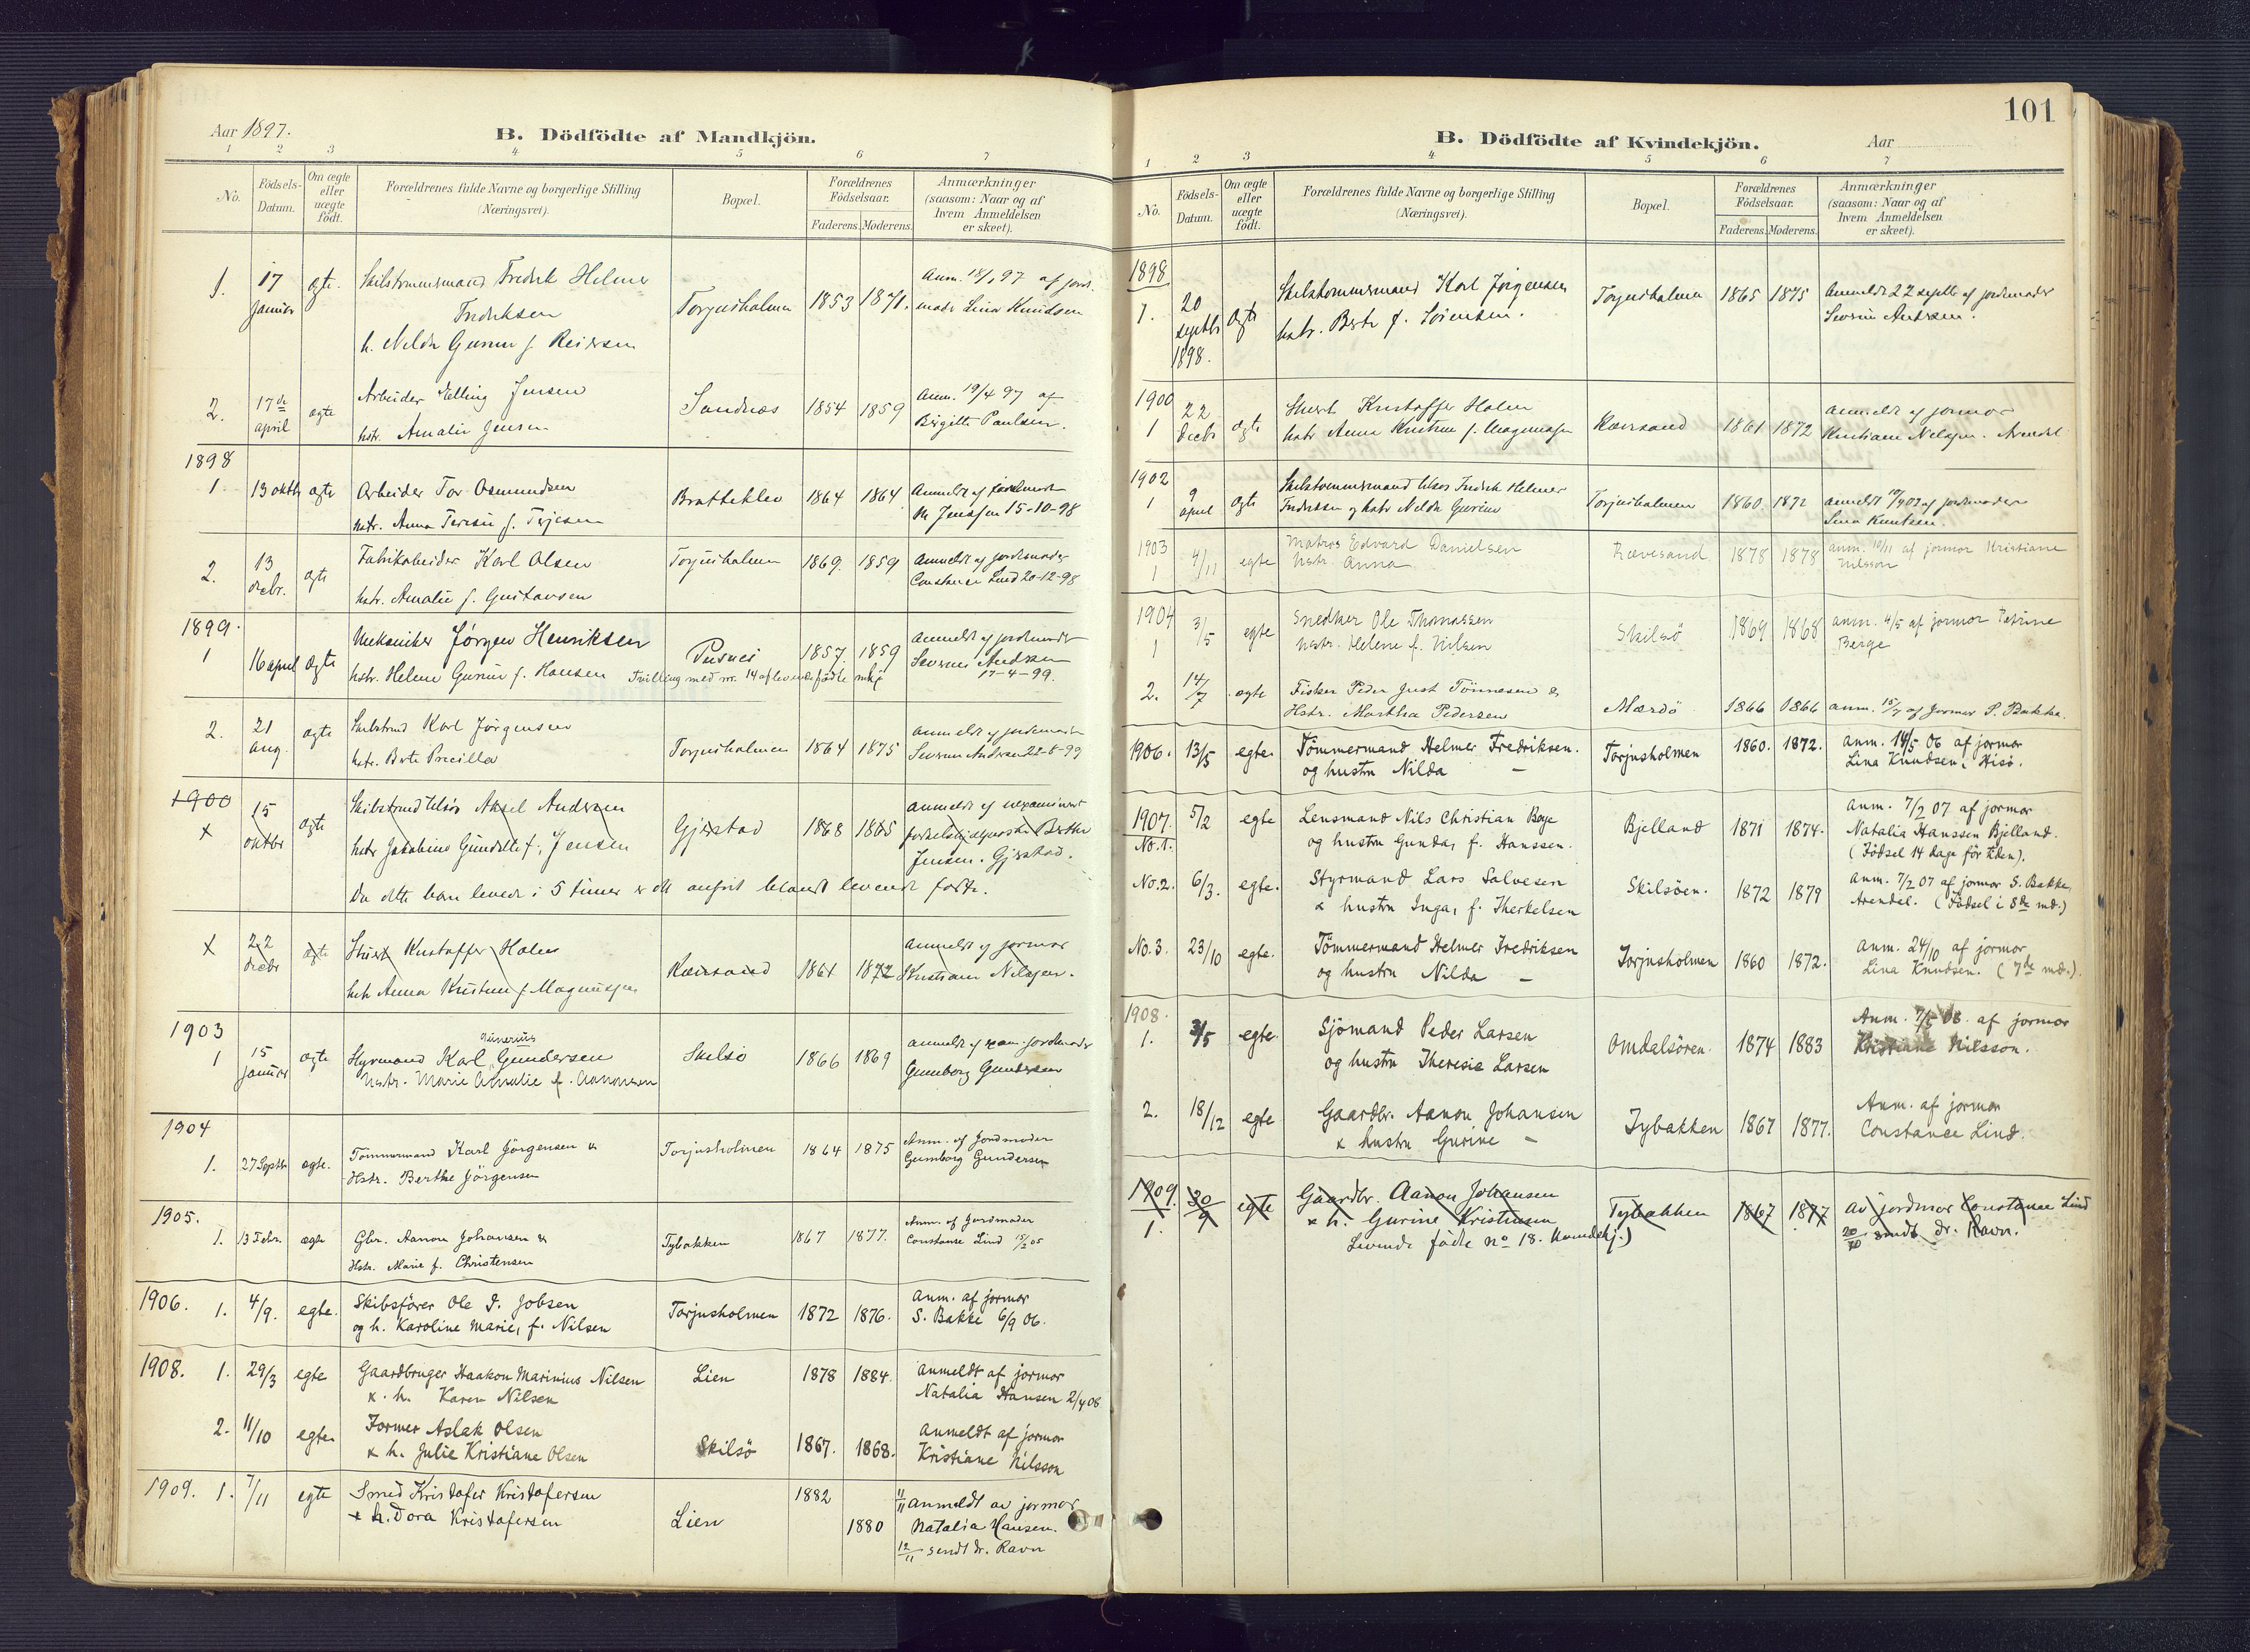 Aar 1897.
B. Dödfödte af Mandkjön.
1 2 3 4 5 6 7
No.
Födsels-Datum.
Om ægte eller uægte födt.
Forældrenes fulde Navne og borgerlige Stilling
(Næringsvei).
Bopæl.
Forældrenes Födselsaar.
Faderens. Moderens.
Anmærkninger
(saasom: Naar og af
hvem Anmeldelsen
er skeet).
1. 17 Januar ægte. Skibstømmermand Fredrik Helmer Torjusholmen 1853 1871. Anm. 18/1 97 af jord-
Fredriksen mode Lina Knudsen
h. Nilda Gurine f. Reiersen
2. 17de april ægte Arbeider Elling Jensen Sandnæs 1854 1859 Anm. 19/4 97 af
hstr. Amalie Jensen Birgitte Paulsen.
1898
1 13 oktb ægte Arbeider Tor Osmundsen Bratteklev 1864 1864 Anmeldt af jordmoder
hstr. Anna Teresie f. Terjesen M Jenssen 15-10-98
2. 13 decbr. ægte Fabrikarbeider Karl Olsen Torjusholmen 1869. 1859 Anmeldt af jordmoder
hstr. Amalie f. Gustavsen Constance Lind 20-12-98
1899.
1 16 april ægte Mekaniker Jørgen Henriksen Pusnes 1857. 1859 Anmeldt af jordmoder
hstr. Helene Gurine f. Hansen Severine Andersen
Tvilling med nr. 14 af levendefødte mkj. 17-4-99.
2. 21 aug. ægte Skibstmd Karl Jørgensen Torjusholmen 1864 1875 anmeldt af jordmoder
hstr. Berte Precilla Severine Andersen 22-8-99
1900
x 15 oktbr ægte Skibstmd tilsøs Aksel Andersen Gjerstad 1868 1865 anmeldt af uexamineret
hstr Jakobine Gundelle f. Jensen fødselshjælperske Berthe
Jensen. Gjerstad.
Da dette barn levede i 5 timer er det anført blandt levende fødte.
x 22 decbr ægte Stuert Kristoffer Holm Rævesand 1861 1872 Anmeldt af jormor
hstr Anna Kristine f. Magnussen Kristiane Nilssen.
1903
1 15 januar ægte Styrmand Karl Ginerius Gundersen Skilsø 1866 1869 anmeldt af exam. jordmoder
Hstr. Marie Amalie f. Aanonsen Gunborg Gundersen
1904
1. 27 Septb ægte. Tømmermand Karl Jørgensen & Torjusholmen 1864 1875 Anm. af Jordmoder
Hstr. Berthe Jörgensen Gunborg Gundersen
1905.
1. 13 Febr. ægte Gbr. Aanon Johansen & Tybakken 1867 1877. Anm. af Jordmoder
Hstr. Marie f. Christensen Constanse Lind 15/2 05
1906. 1. 4/9. egte. Skibsförer Ole J. Jobsen Torjusholmen 1872 1876. Anm. af jormor
og h. Karoline Marie, f. Nilsen S. Bakke 6/9 06.
1908. 1. 29/3 egte Gaardbruger Haakon Marinius Nilsen Lien 1878 1884. Anmeldt af jormor
& h. Karen Nilsen Natalia Hansen 2/4 08
2. 11/10 egte. Former Aslak Olsen Skilsö 1867. 1868. Anmeldt af jormor
& h. Julie Kristiane Olsen Kristiane Nilsson
1909. 1. 7/11 egte Smed Kristofer Kristofersen Lien 1882 1880 11/11 anmeldt av jormor
& h. Dora Kristofersen Natalia Hansen.
12/11 sendt dr. Ravn
101
B. Dödfödte af Kvindekjön.
Aar
1 2 3 4 5 6 7
No.
Födsels-Datum.
Om ægte eller uægte födt.
Forældrenes fulde Navne og borgerlige Stilling
(Næringsvei).
Bopæl.
Forældrenes Födselsaar.
Faderens. Moderens.
Anmærkninger
(saasom: Naar og af
hvem Anmeldelsen
er skeet).
1898
1. 20 septbr 1898. ægte Skibstømmermand Karl Jørgensen Torjusholmen 1865 1875 Anmeldt 22 septb af jordmoder
hstr. Berte f. Sørensen. Severine Andersen.
1900
1 22 decbr ægte Stuert Kristoffer Holm Rævesand 1861 1872 anmeldt af jormor
hstr Anna Kristine f. Magnussen Kristiane Nilssen. Arendal
1902
1 9 april ægte Skibstømmermand tilsøs Fredrik Helmer Torjusholmen 1860 1872 anmeldt 10/4 02 af jordmoder
Fredriksen og hstr Nilda Gurine Lina Knutsen.
1903
1 4/11 egte Matros Edvard Danielsen Rævesand 1878 1878 anm. 10/11 af jormor Kristiane
hstr. Anna Nilsson
1904
1 3/5 egte Snedker Ole Thomassen Skilsö 1869 1868 anm. 4/5 af jormor Petrine
hstr. Helene f. Nilsen Berge
2. 14/7 ægte Fisker Peder Just Tönnesen & Mærdö 1866 1866 anm. 15/7 af Jormor P. Bakke.
Hstr. Martha Pedersen
1906. 13/5 egte. Tömmermand Helmer Fredriksen. Torjusholmen 1860. 1872. anm. 14/5 06 af jormor
og hustru Nilda — Lina Knudsen, Hisö.
1907. No. 1. 5/2 egte Lensmand Nils Christian Bøye Bjelland 1871 1874. anm. 7/2 07 af jormor
og hustru Gunda, f. Hanssen. Natalia Hanssen Bjelland.
(Födsel 14 dage för tiden).
No. 2. 6/3. egte. Styrmand Lars Salvesen Skilsöen. 1872 1879 anm. 7/2 07 af jormor S. Bakke,
& hustru Inga, f. Therkelsen Arendal. (Födsel i 8de md.)
No. 3. 23/10 egte. Tömmermand Helmer Fredriksen Torjusholmen 1860 1872. anm. 24/10 af jormor
og hustru Nilda — Lina Knudsen. (7de md.).
1908.
1. 3/5 egte. Sjömand Peder Larsen Omdalsören. 1874 1883 Anm. 7/5 08. af jormor
og hustru Theresie Larsen Kristiane Nilsson.
2. 18/12 egte Gaardbr. Aanon Johansen Tybakken 1867 1877. Anm. af jormor
& hustru Gurine — Constance Lind.
1909. 1. 20/9 egte Gaardbr. Aanon Johansen Tybakken 1867 1877 av jordmor Constance Lind
& h. Gurine Kristensen 20/10 sendt dr. Ravn.
Levende födte No 18. Kvindekj.)